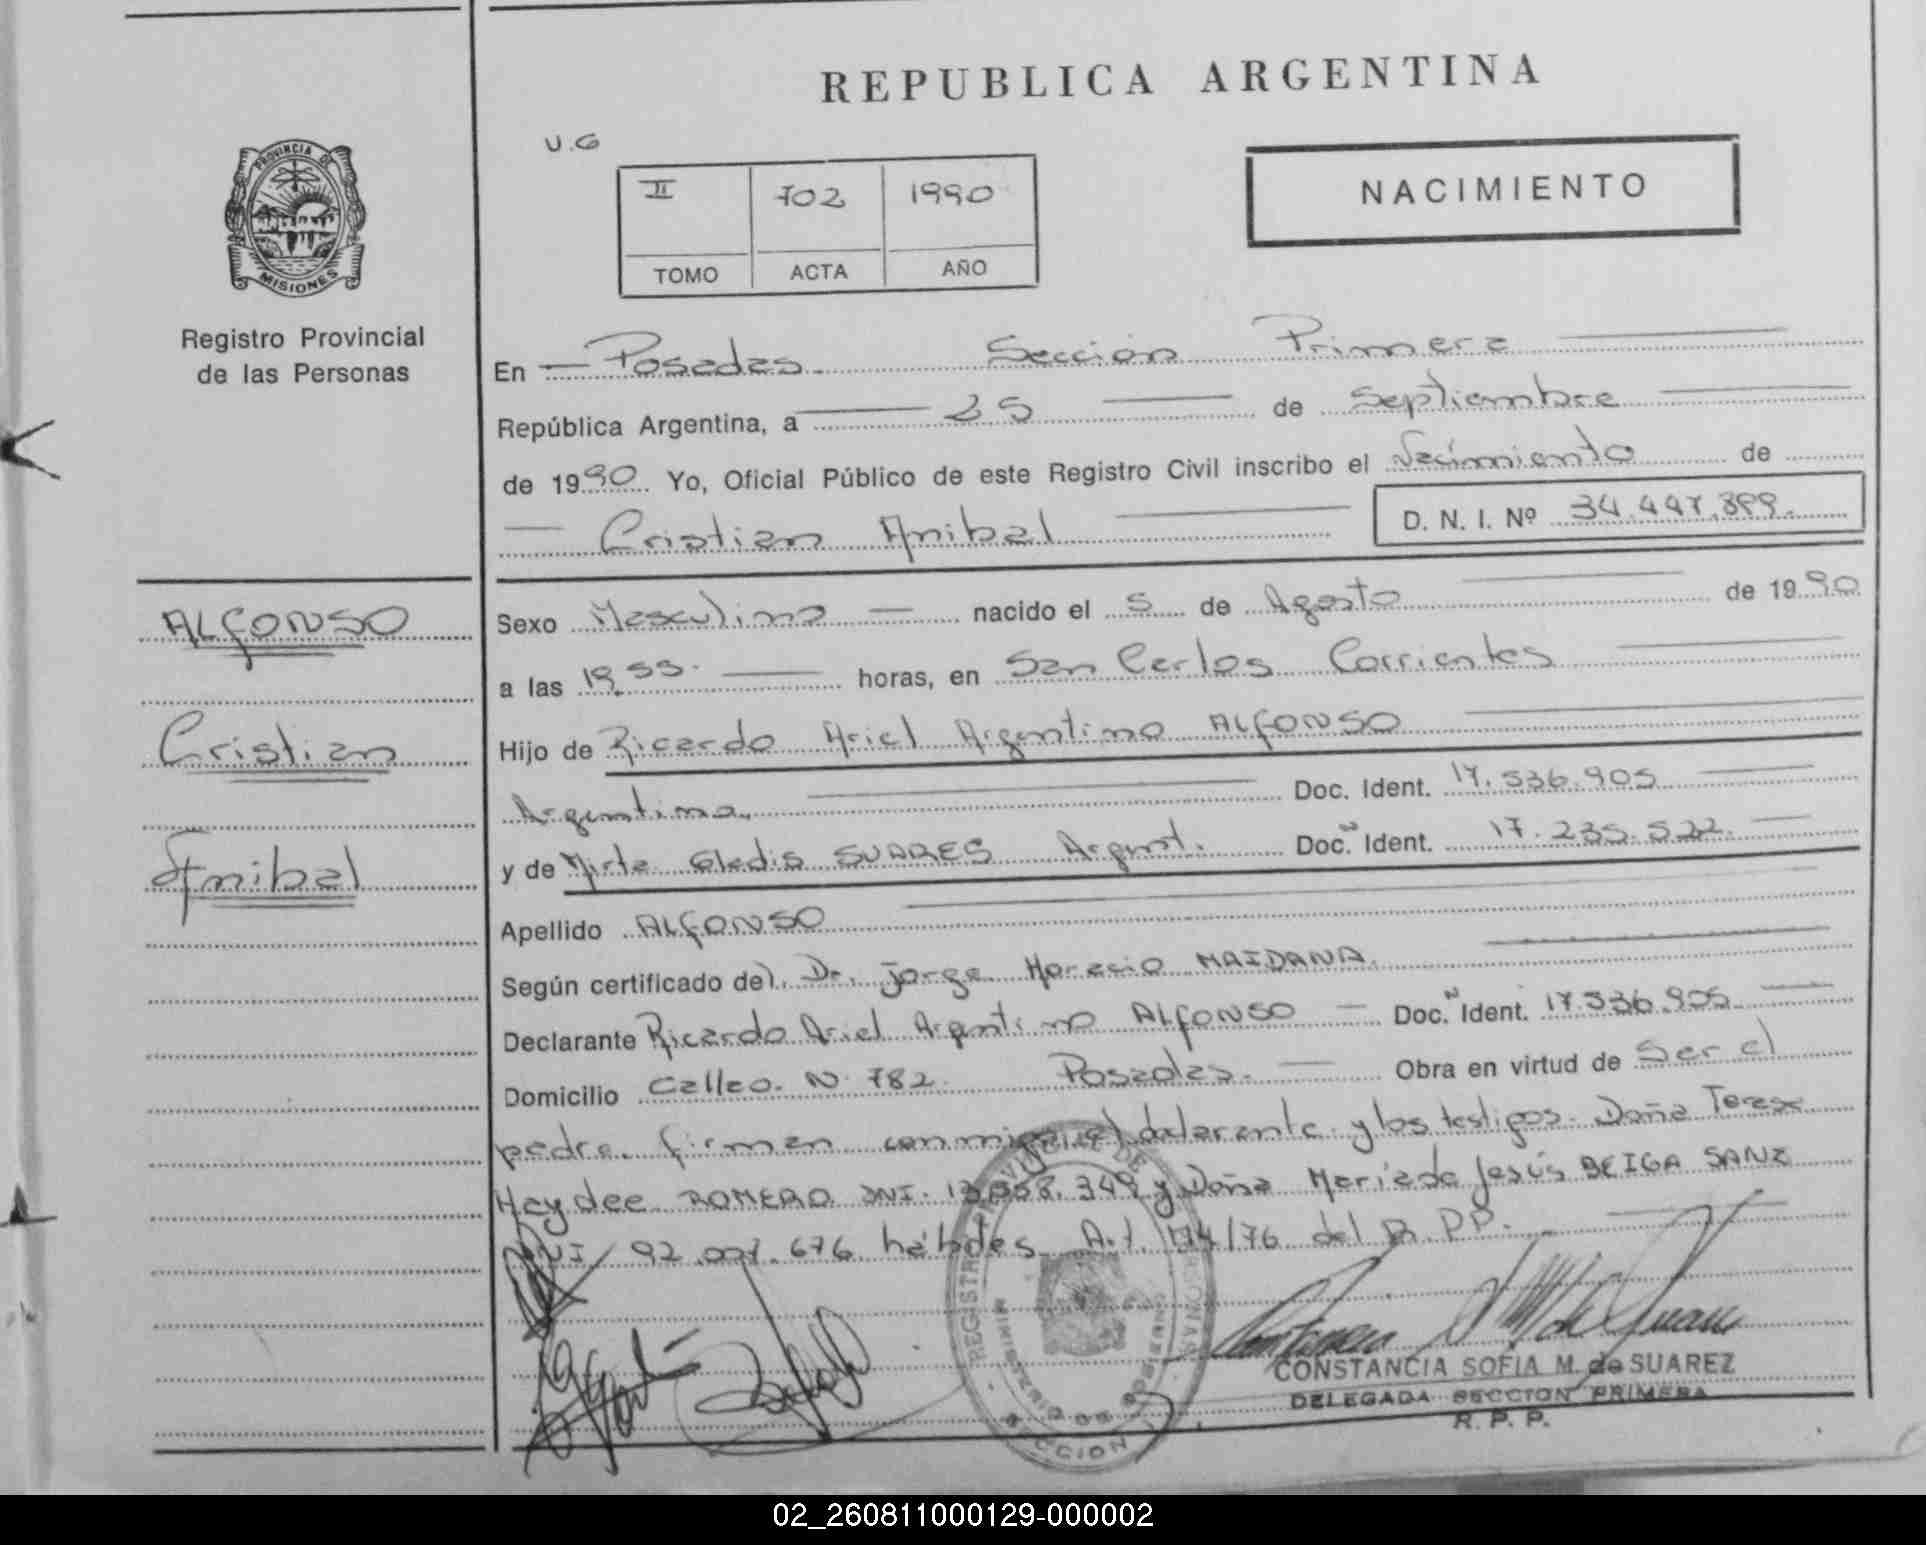 REPUBLICA ARGENTINA
U.G
II 702 1990
TOMO ACTA AÑO
NACIMIENTO
PROVINCIA DE
MISIONES
Registro Provincial
de las Personas
En Posadas. Sección Primera
República Argentina, a 25 de Septiembre
de 1990 Yo, Oficial Público de este Registro Civil inscribo el Nacimiento de
Cristian Anibal D. N. I. Nº 34.447.899.
ALFONSO
Cristian
Anibal
Sexo Masculino nacido el 5 de Agosto de 1990
a las 19,55. horas, en San Carlos Corrientes
Hijo de Ricardo Ariel Argentino ALFONSO
Argentina. Doc. Ident. 17.536.905
y de Mirta Gladis SUARES Argent. Doc. Ident. 17.235.522.
Apellido ALFONSO
Según certificado del Dr. Jorge Horacio MAIDANA.
Declarante Ricardo Ariel Argentino ALFONSO Doc. Ident. 17.536.905
Domicilio Callao. N. 782. Posadas. Obra en virtud de Ser el
padre. firman conmigo el declarante y los testigos. Doña Teresa
Haydee ROMERO DNI. 349 y Doña Maria de Jesús BEIGA SANZ
DNI 92.007.676 habiles Art. 74/76 del R.PP.
REGISTRO PROVINCIAL DE PERSONAS
MINISTERIO DE GOBIERNO
SECCION
CONSTANCIA SOFIA M. de SUAREZ
DELEGADA SECCION PRIMERA
R. P. P.
02_260811000129-000002